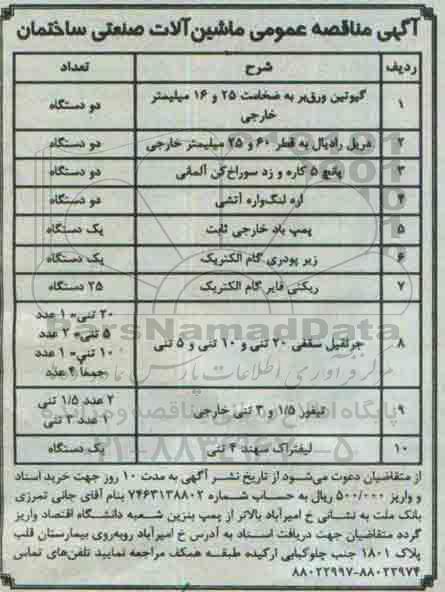 آگهی مناقصه عمومی ماشین‌آلات صنعتی ساختمان
ردیف شرح تعداد
۱ گیوتین ورق‌بر به ضخامت ۲۵ و ۱۶ میلیمتر خارجی دو دستگاه
۲ دریل رادیال به قطر ۶۰ و ۲۵ میلیمتر خارجی دو دستگاه
۳ پانچ ۵ کاره و زد سوراخ‌کن آلمانی دو دستگاه
۴ اره لنگ‌واره آتشی دو دستگاه
۵ پمپ باد خارجی ثابت یک دستگاه
۶ زیر پودری گام الکتریک یک دستگاه
۷ رکتی فایر گام الکتریک ۲۵ دستگاه
۸ جرثقیل سقفی ۲۰ تنی و ۱۰ تنی و ۵ تنی
۲۰ تنی= ۱ عدد
۵ تنی= ۲ عدد
۱۰ تنی= ۱ عدد
جمعاً ۴ عدد
۹ تیفور ۱/۵ و ۳ تنی خارجی
۲ عدد ۱/۵ تنی
۱ عدد ۳ تنی
۱۰ لیفتراک سهند ۴ تنی یک دستگاه
از متقاضیان دعوت می‌شود از تاریخ نشر آگهی به مدت ۱۰ روز جهت خرید اسناد
و واریز ۵۰۰/۰۰۰ ریال به حساب شماره ۷۴۶۳۱۳۸۸۰۲ بنام آقای جانی تمرزی
بانک ملت به نشانی خ امیرآباد بالاتر از پمپ بنزین شعبه دانشگاه اقتصاد واریز
گردد متقاضیان جهت دریافت اسناد به آدرس خ امیرآباد روبه‌روی بیمارستان قلب
پلاک ۱۸۰۱ جنب چلوکبابی ارکیده طبقه همکف مراجعه نمایید تلفن‌های تماس
۸۸۰۲۲۹۹۷-۸۸۰۲۳۹۷۴
ParsNamadData
پایگاه اطلاع رسانی مناقصه و مزایده